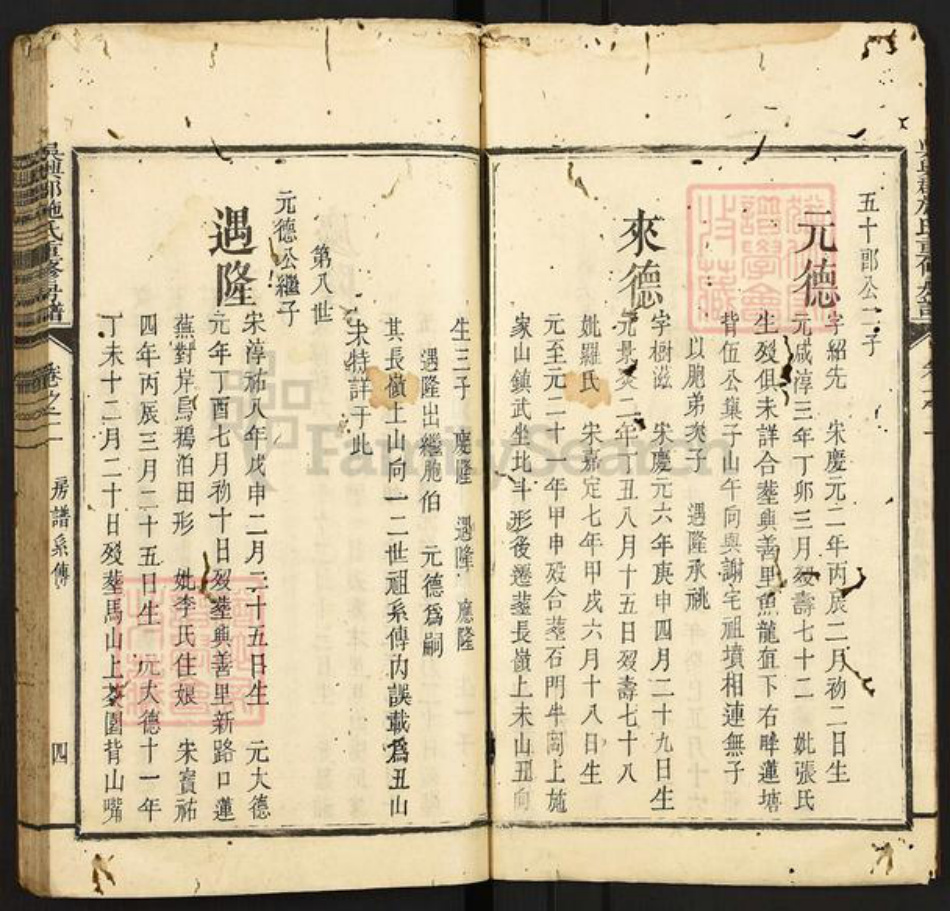 五十郎公二子
元德字紹先　宋慶元二年丙辰二月初二日生
元咸淳三年丁卯三月歿壽七十二　妣張氏
生歿俱未詳合塟興善里魚龍　下右畔蓮塘
背伍公集子山午向與謝宅祖墳相連無子
以胞弟來子　遇隆承祧
來德字樹滋　宋慶元六年庚申四月二十九日生
元景炎二年丁丑八月十五日歿壽七十八
妣羅氏　宋嘉定七年甲戌六月十八日生
元至元二十一年甲申歿合塟石門牛　上施
家山鎮武坐北斗形後遷塟長嶺上未山丑向
生三子　慶隆　遇隆　應隆
遇隆出繼胞伯　元德爲嗣
其長嶺上山向一二世祖系傳內誤載爲丑山
未特詳于此
第八世
元德公繼子
遇隆宋淳祐八年戊申二月二十五日生　元大德
元年丁酉七月初十日歿塟興善里新路口蓮
蕪對岸烏鴉泊田形　妣李氏住娘　宋寳祐
四年丙辰三月二十五日生　元大德十一年
丁未十二月二十日歿塟馬山上茶園背山嘴
吳興郡施氏重修房譜
卷之二
房譜系傳
四
FamilySearch